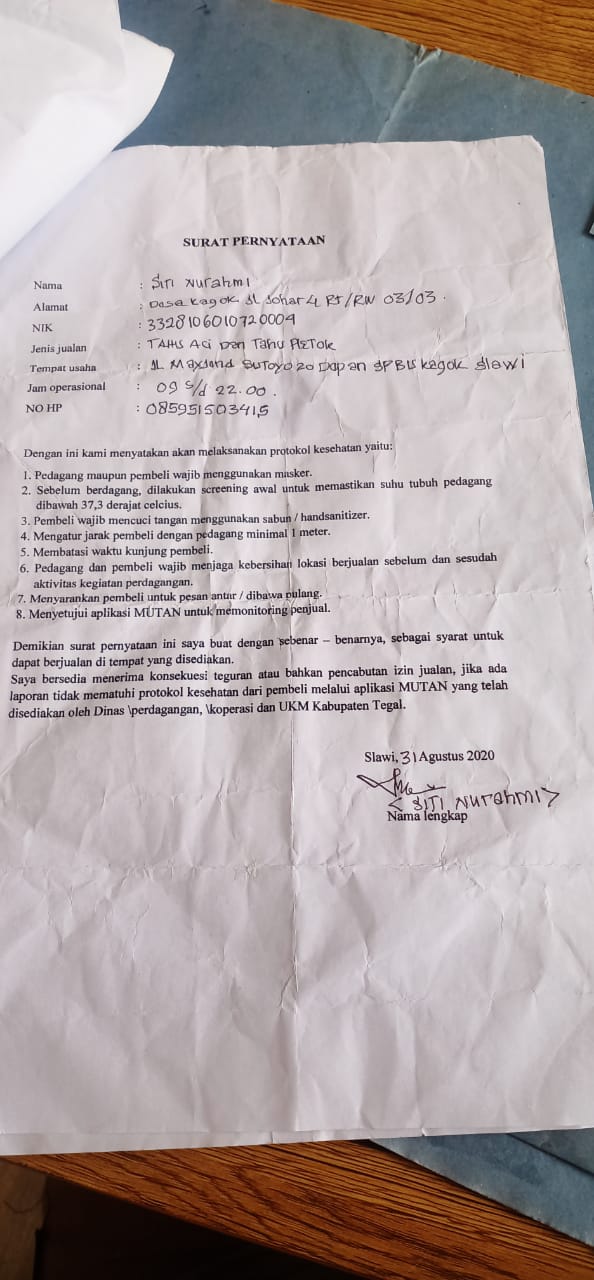 SURAT PERNYATAAN
Nama : Siti Nurahmi
Alamat : Desa kagok Jl Johar 4 Rt/RW 03/03.
NIK : 3328106010720004
Jenis jualan : TAHU Aci Dan Tahu PLETOK
Tempat usaha : JL Maxjend SUTOYO 20 Dapan SPBU kagok Slawi
Jam operasional : 09 s/d 22.00.
NO HP : 085951503415
Dengan ini kami menyatakan akan melaksanakan protokol kesehatan yaitu:
1. Pedagang maupun pembeli wajib menggunakan masker.
2. Sebelum berdagang, dilakukan screening awal untuk memastikan suhu tubuh pedagang
dibawah 37,3 derajat celcius.
3. Pembeli wajib mencuci tangan menggunakan sabun / handsanitizer.
4. Mengatur jarak pembeli dengan pedagang minimal 1 meter.
5. Membatasi waktu kunjung pembeli.
6. Pedagang dan pembeli wajib menjaga kebersihan lokasi berjualan sebelum dan sesudah
aktivitas kegiatan perdagangan.
7. Menyarankan pembeli untuk pesan antar / dibawa pulang.
8. Menyetujui aplikasi MUTAN untuk memonitoring penjual.
Demikian surat pernyataan ini saya buat dengan sebenar – benarnya, sebagai syarat untuk
dapat berjualan di tempat yang disediakan.
Saya bersedia menerima konsekuesi teguran atau bahkan pencabutan izin jualan, jika ada
laporan tidak mematuhi protokol kesehatan dari pembeli melalui aplikasi MUTAN yang telah
disediakan oleh Dinas \perdagangan, \koperasi dan UKM Kabupaten Tegal.
Slawi, 31 Agustus 2020
< SITI Nurahmi >
Nama lengkap